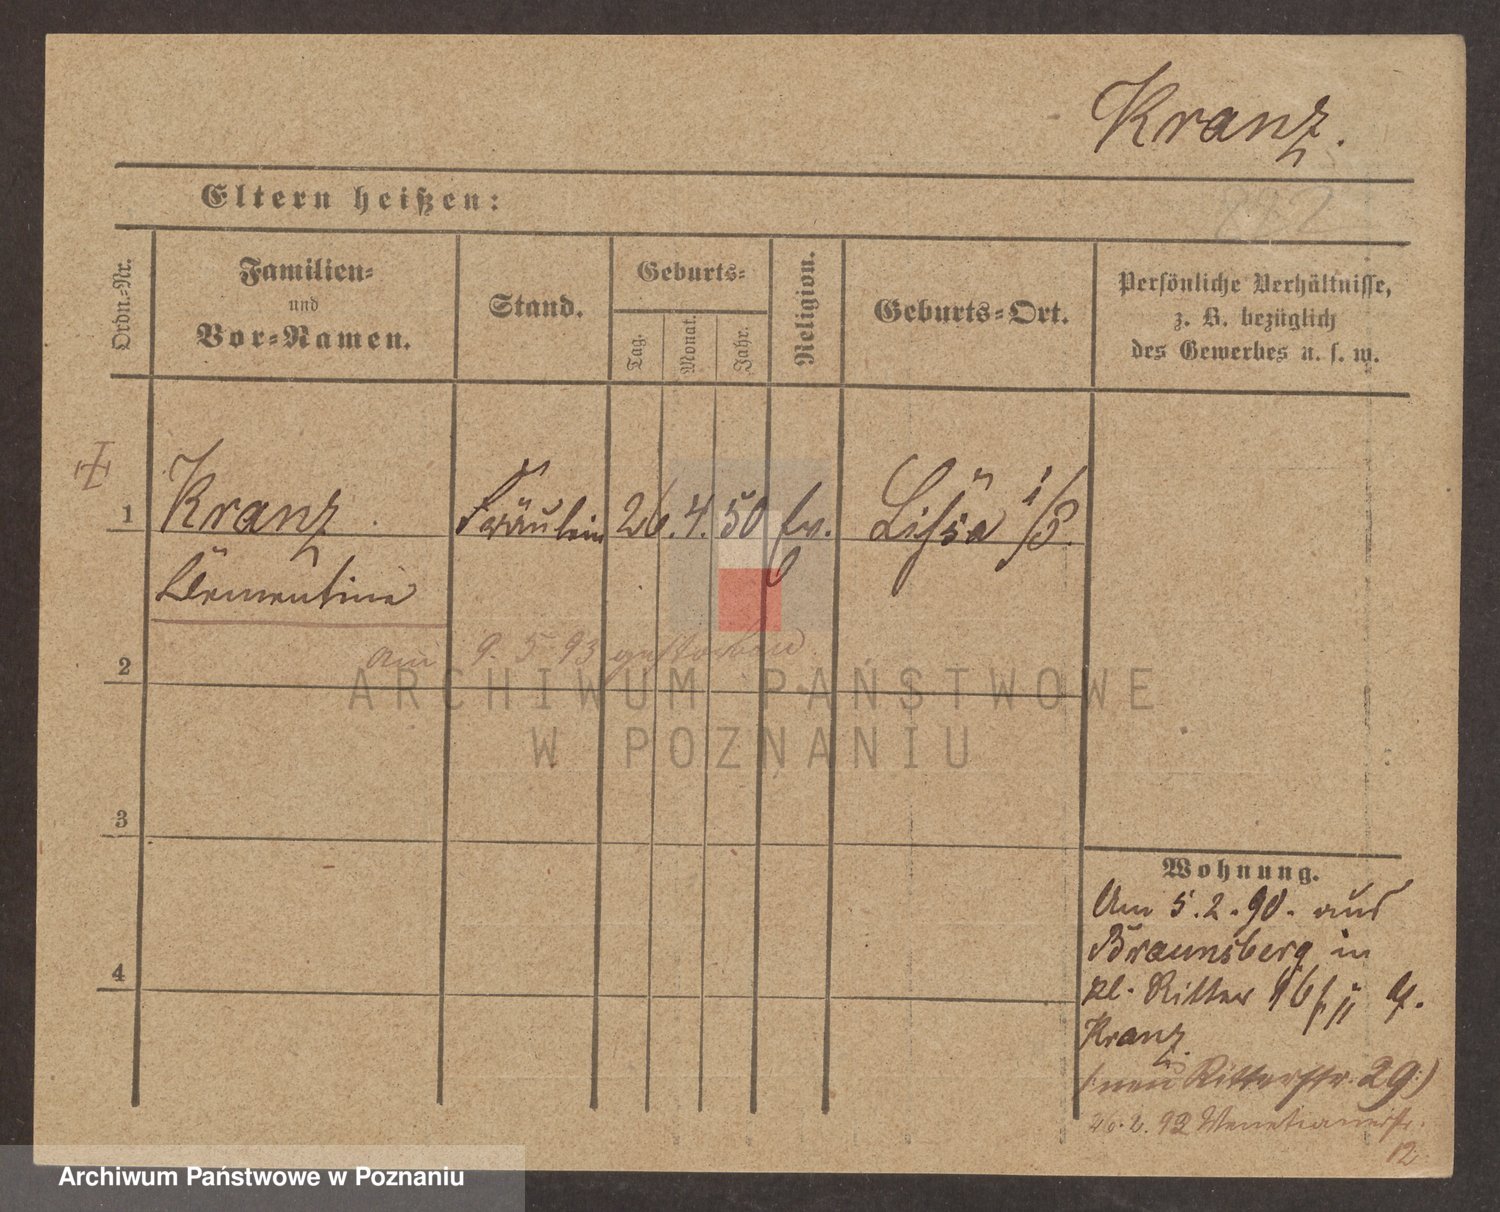 Kranz.
Eltern heißen:
222
Ordn.-Nr.
Familien-
und
Vor-Namen.
Stand.
Geburts-
Tag.
Monat.
Jahr.
Religion.
Geburts-Ort.
Persönliche Verhältnisse,
z. B. bezüglich
des Gewerbes u. s. w.
1
Kranz
Fräulein
26. 4. 50
ev.
Lissa i/P.
Clementine
am 9. 5. 93 gestorben
2
3
4
Wohnung.
Am 5. 2. 90. aus
Braunsberg in
kl. Ritter 16
Kranz.
(: neu Ritterstr. 29 :)
26. 2. 92 Venetianerstr.
12
ARCHIWUM PAŃSTWOWE
W POZNANIU
Archiwum Państwowe w Poznaniu